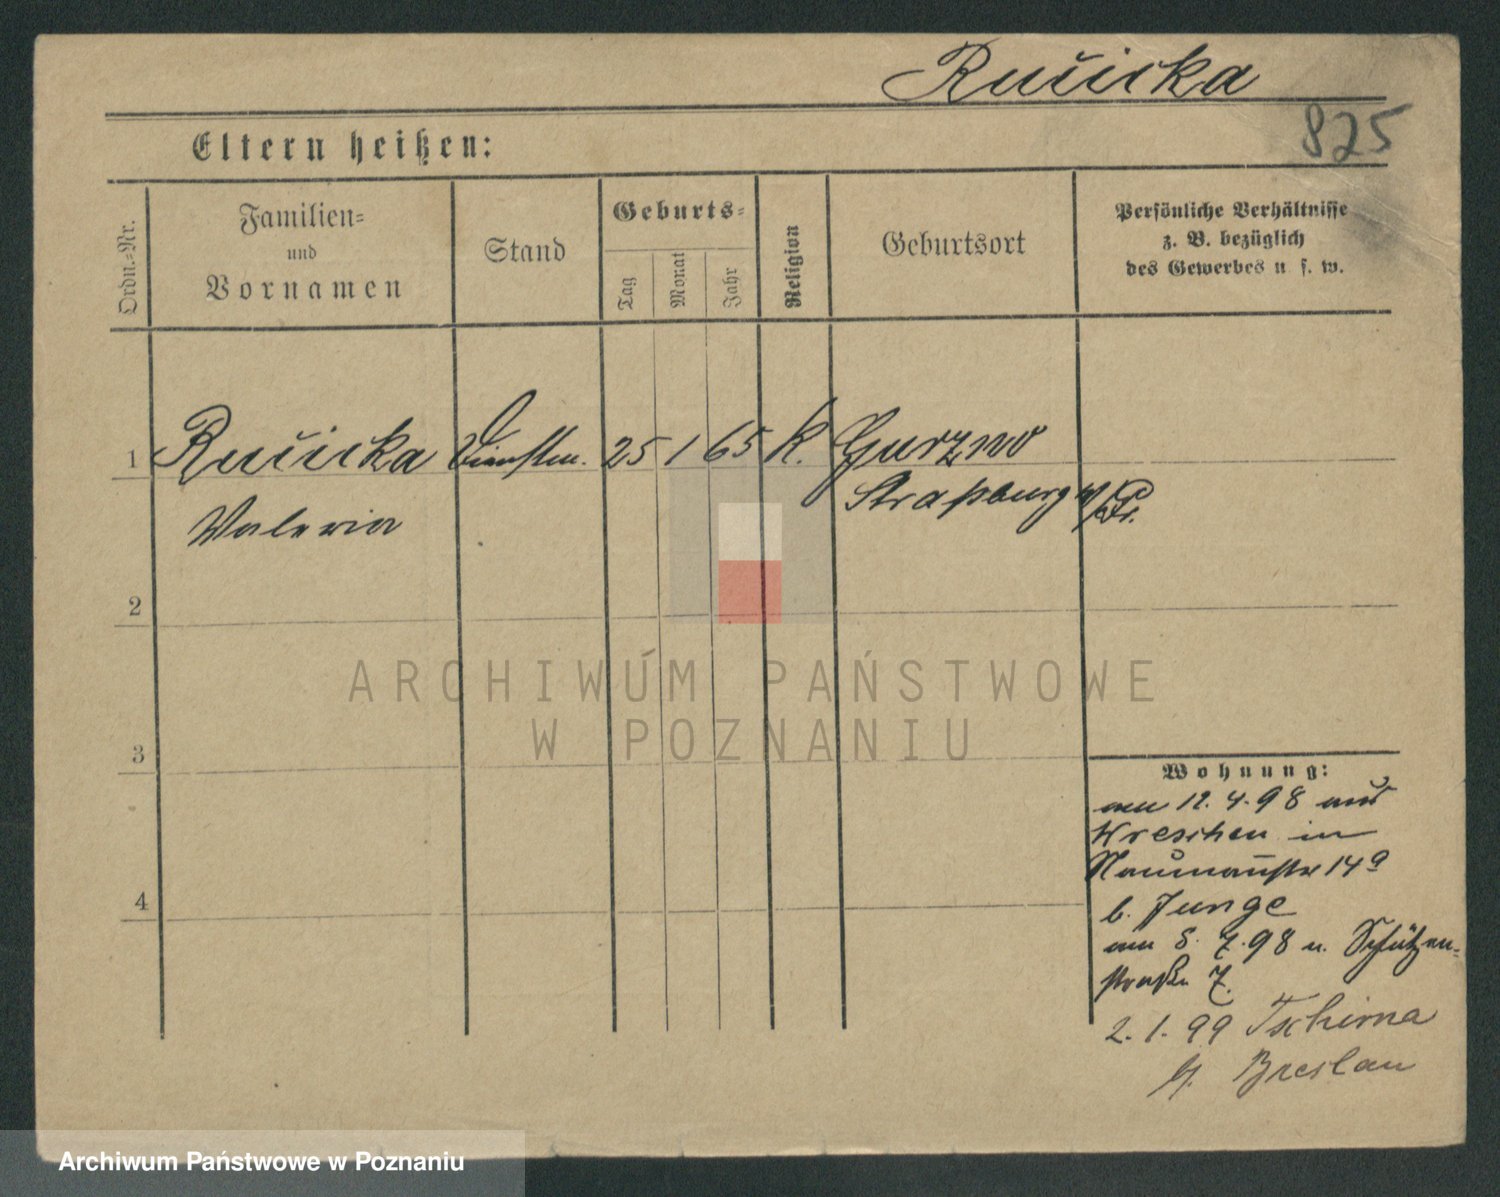 Ručicka
825
Eltern heißen:
Ordn.-Nr.
Familien-
und
Vornamen
Stand
Geburts-
Tag
Monat
Jahr
Religion
Geburtsort
Persönliche Verhältnisse
z. B. bezüglich
des Gewerbes u. s. w.
1 Ručicka Dienstm. 25 1 65 K. Gurzno
Straßburg W/Pr.
Valeria
2
3
4
Wohnung:
am 12. 4. 98 aus
Wreschen in
Naumannstr 14a
b. Junge
am 8. 7. 98 n. Schützen-
straße 7.
2. 1. 99 Tschirna
Breslau
ARCHIWUM PAŃSTWOWE
W POZNANIU
Archiwum Państwowe w Poznaniu